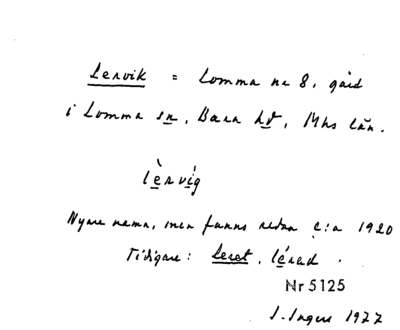 Lervik = Lomma nr 8, gård
i Lomma sn, Bara hd, Mhs län.
lèrvig
Nyare namn, men fanns redan c:a 1920
Tidigare: Leret, lérad.
Nr 5125
I. Ingers 1977